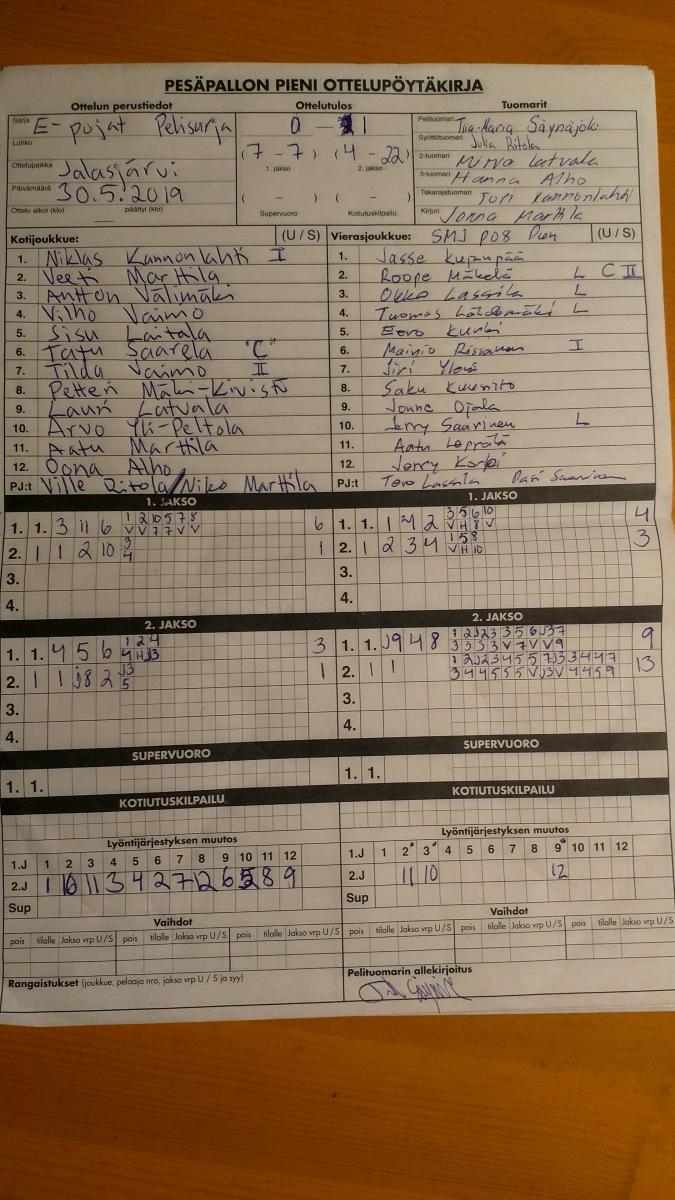 PESÄPALLON PIENI OTTELUPÖYTÄKIRJA
Ottelun perustiedot Ottelutulos Tuomarit
Sarja E-pojat Pelisarja
Lohko
Ottelupaikka Jalasjärvi
Päivämäärä 30.5.2019
Ottelu alkoi (klo) päättyi (klo)
0 - 1
(7 - 7) (4 - 22)
1. jakso 2. jakso
( - ) ( - )
Supervuoro Kotiutuskilpailu
Pelituomari Tiia-Maria Säynäjoki
Syöttötuomari Julia Ritola
2-tuomari Minva Latvala
3-tuomari Hanna Alho
Takarajatuomari Jori Kannonlahti
Kirjuri Jonna Marttila
Kotijoukkue: (U / S)
1. Niklas Kannonlahti I
2. Veeti Marttila
3. Antton Välimäki
4. Vilho Vaimo
5. Sisu Laitala
6. Tatu Saarela "C"
7. Tilda Vaimo II
8. Petteri Mäki-Kivistö
9. Lauri Latvala
10. Arvo Yli-Peltola
11. Aatu Marttila
12. Oona Alho
PJ:t Ville Ritola/Niko Marttila
Vierasjoukkue: SMJ P08 (U / S)
1. Jasse
2. Roope Mäkelä L C II
3. Okko Lassila L
4. Tuomas Lähdemäki L
5. Eero Kunki
6. Mainio Rissanen I
7. Jiri
8. Saku
9. Jonne Ojala
10. Jerry Saarinen L
11. Aatu Leppälä
12. Jerry Korpi
PJ:t Tero Lassila Pasi Saarinen
1. JAKSO
1. 1. 3 11 6 1 2 10 5 7 8 6
V V 7 7 V V
2. 1 1 2 10 3 1
4
3.
4.
1. JAKSO
1. 1. 1 2 3 5 6 10 4
V H 8 V
2. 1 2 3 4 1 5 8 3
V H 10
3.
4.
2. JAKSO
1. 1. 4 5 6 1 2 4 3
4 H J3
2. 1 1 J8 2 J3 1
5
3.
4.
2. JAKSO
1. 1. J9 4 8 1 2 J2 3 3 5 6 J3 7 9
3 3 3 V 7 V V 9
2. 1 1 1 2 J2 3 4 5 5 7 J3 3 4 4 7 13
3 4 4 5 5 5 V J3 V 4 4 5 9
3.
4.
SUPERVUORO
1. 1.
SUPERVUORO
1. 1.
KOTIUTUSKILPAILU
KOTIUTUSKILPAILU
Lyöntijärjestyksen muutos
1.J 1 2 3 4 5 6 7 8 9 10 11 12
2.J 1 10 11 3 4 2 7 12 6 5 8 9
Sup
Lyöntijärjestyksen muutos
1.J 1 2 3 4 5 6 7 8 9 10 11 12
2.J 11 10 12
Sup
Vaihdot
pois tilalle Jakso vrp U/S pois tilalle Jakso vrp U/S pois tilalle Jakso vrp U/S
Vaihdot
pois tilalle Jakso vrp U/S pois tilalle Jakso vrp U/S pois tilalle Jakso vrp U/S
Rangaistukset (joukkue, pelaaja nro, jakso vrp U / S ja syy)
Pelituomarin allekirjoitus